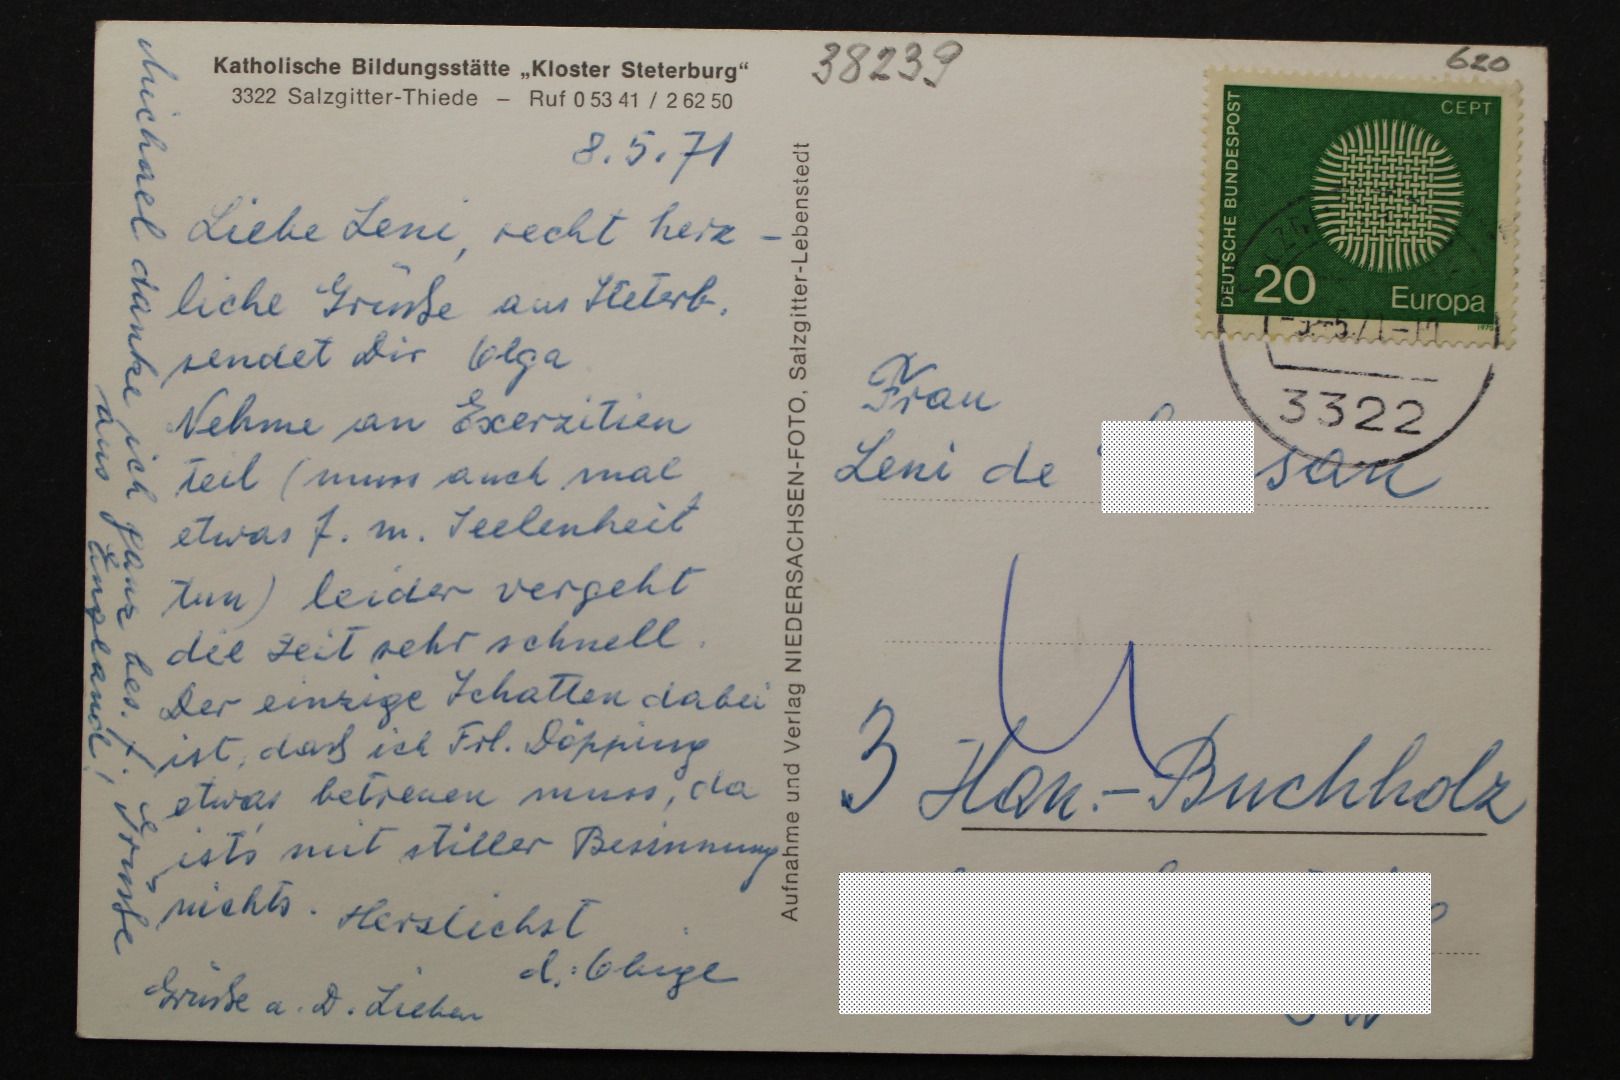 Katholische Bildungsstätte „Kloster Steterburg“
3322 Salzgitter-Thiede – Ruf 0 53 41 / 2 62 50
8.5.71
Liebe Leni, recht herz-
liche Grüße aus Steterb.
sendet Dir Olga
Nehme an Exerzitien
teil (muss auch mal
etwas f. m. Seelenheil
tun) leider vergeht
die Zeit sehr schnell.
Der einzige Schatten dabei
ist, daß ich Frl. Döpping
etwas betreuen muss, da
ist's mit stiller Besinnung
nichts. Herzlichst
d. Obige
Grüße a. D. Lieben
Michael danke ich ganz bes. f. Grüße
aus England!
Aufnahme und Verlag NIEDERSACHSEN-FOTO, Salzgitter-Lebenstedt
38239
620
DEUTSCHE BUNDESPOST
CEPT
20
Europa
1970
3322
Frau
Leni de
3 Han.-Buchholz